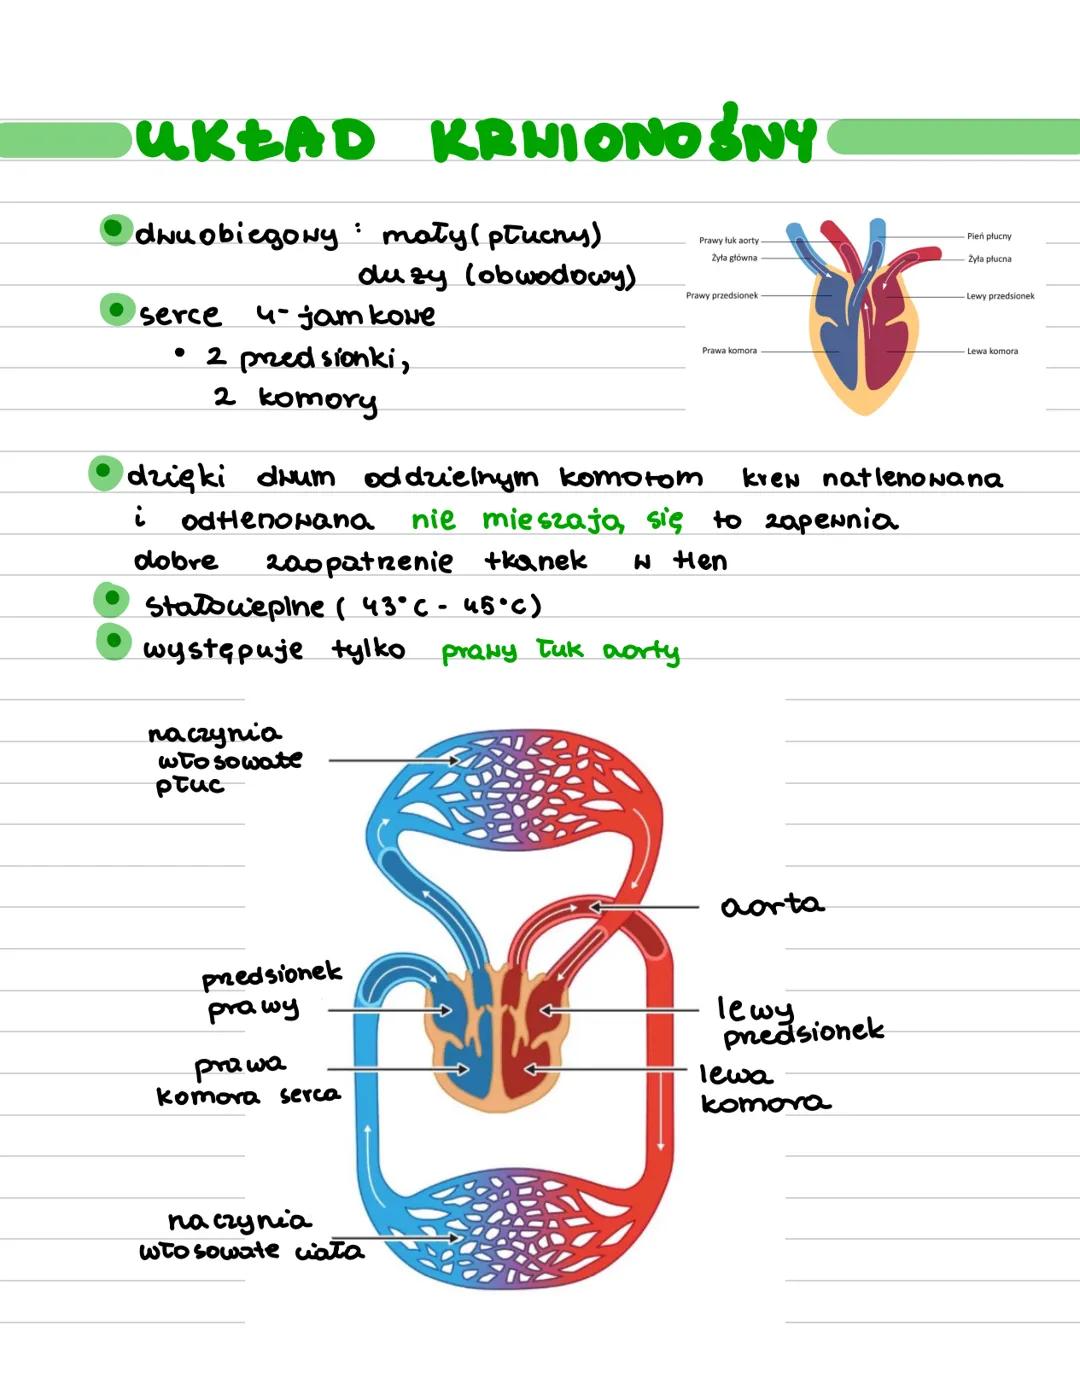 UKŁAD KRWIONOŚNY
dwuobiegowy : mały (płucny)
duży (obwodowy)
serce 4-jamkowe
• 2 przedsionki,
2 komory
Prawy łuk aorty
Żyła główna
Prawy przedsionek
Prawa komora
Pień płucny
Żyła płucna
Lewy przedsionek
Lewa komora
dzięki dwum oddzielnym komorom krew natlenowana
i odtlenowana nie mieszają się to zapewnia
dobre zaopatrzenie tkanek w tlen
stałocieplne ( 43°C - 45°C)
występuje tylko prawy łuk aorty
naczynia
włosowate
płuc
aorta
przedsionek
prawy
lewy
przedsionek
prawa
komora serca
lewa
komora
naczynia
włosowate ciała